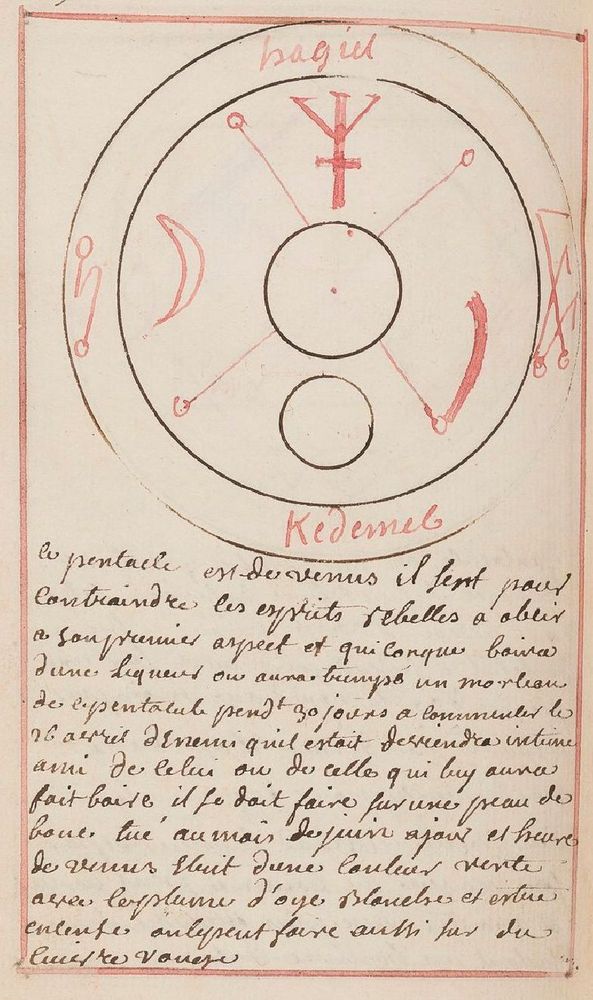 hagiel
Kedemel
le pentacle est de venus il sert pour
contraindre les esprits rebelles a obeir
a son premier aspect et quiconque boira
d'une liqueur ou aura trempé un morceau
de ce pentacule pend.t 30 jours a commencer le
26 avril d'Enemi qu'il estait deviendra intime
ami de celui ou de celle qui luy aura
fait boire il se doit faire sur une peau de
bouc tué au mois de juin a jour et heure
de venus Ecrit d'une couleur verte
avec la plume d'oye blanche et estre
encensé on le peut faire aussi sur du
cuivre rouge